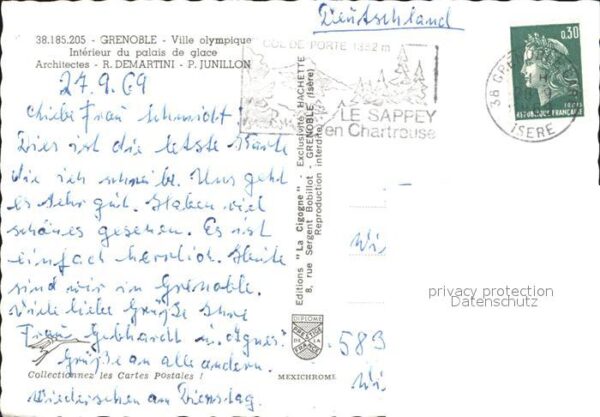 Deutschland
38.185.205 - GRENOBLE - Ville olympique
Intérieur du palais de glace
Architectes - R. DEMARTINI - P. JUNILLON
COL DE PORTE 1352 m
LE SAPPEY
en Chartreuse
38 GRENOBLE
ISERE
0,30
REPUBLIQUE FRANÇAISE
27.9.69
Liebe Frau Schmidt!
Dies ist die letzte Karte
die ich schreibe. Uns geht
es sehr gut. Haben viel
schönes gesehen. Es ist
einfach herrlich. Heute
sind wir in Grenoble.
Viele liebe Grüße Ihre
Frau Gebhardt u. Agnes
Grüße an alle andern.
Wiedersehen am Dienstag.
Editions "La Cigogne" - Exclusivité HACHETTE
8, rue Sergent Bobillot - GRENOBLE (Isère)
Reproduction interdite
DIPLOME
PRESTIGE
DE LA
FRANCE
Collectionnez les Cartes Postales !
MEXICHROME
Wi
583
Wi
privacy protection
Datenschutz